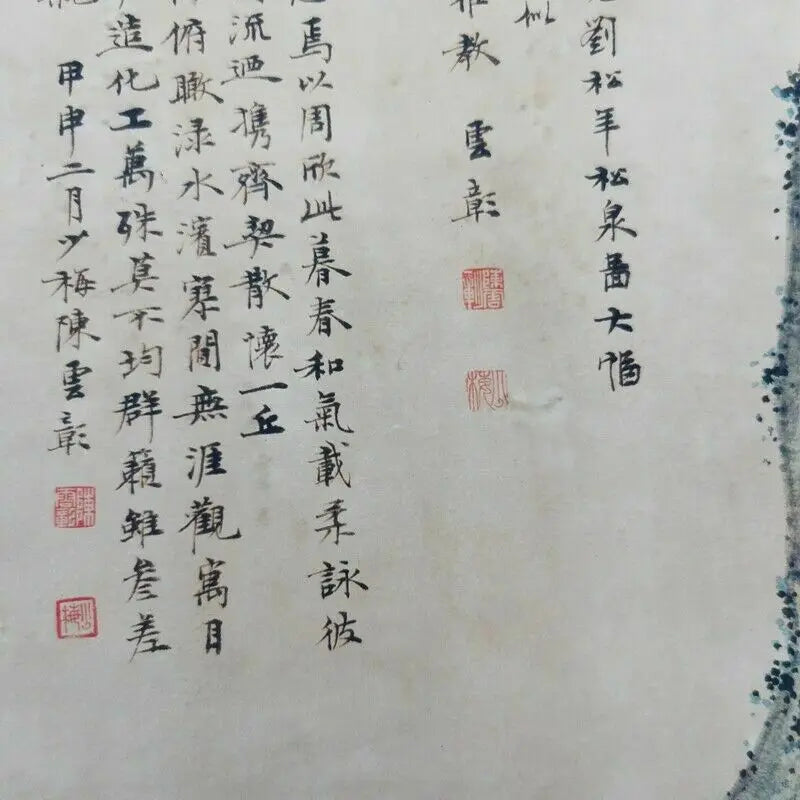 劉松年松泉啚大幅
似
教 雲彰
少梅
焉以周欣此暮春和氣載柔詠彼
流迺攜齊契散懷一丘
俯瞰渌水濱寥間無涯觀寓目
造化工萬殊莫不均群籟雖參差
甲申二月少梅陳雲彰
陳雲彰
少梅